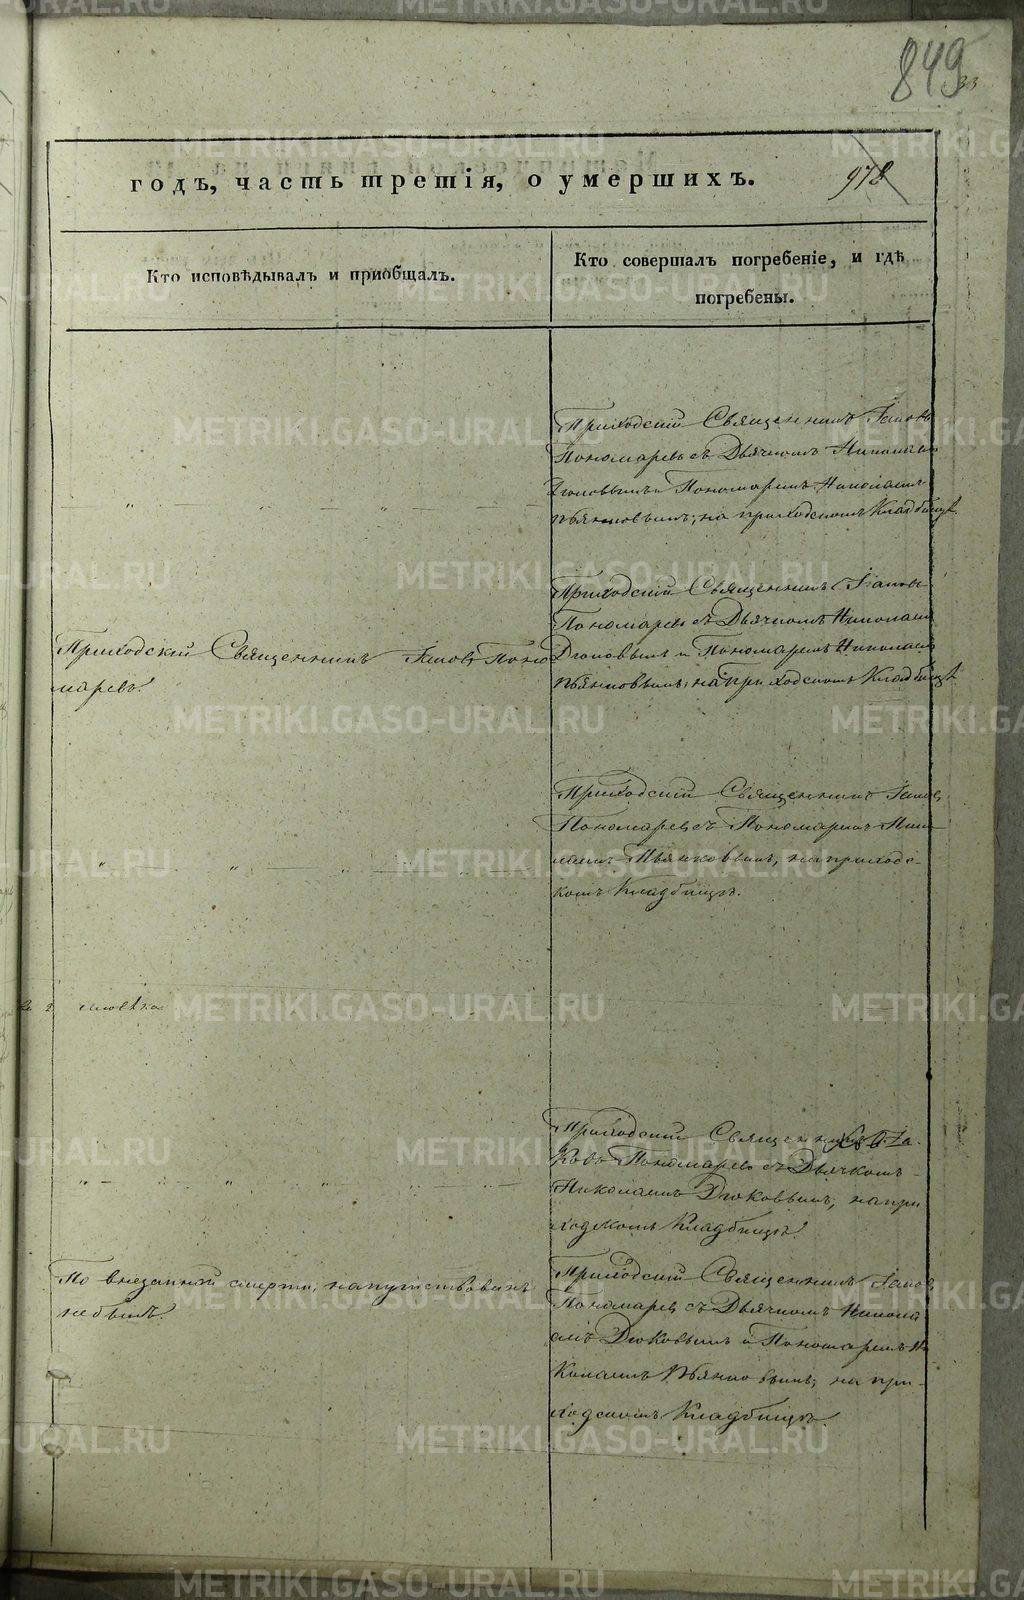 849
33
годъ, часть третія, о умершихъ.
978
Кто исповѣдывалъ и пріобщалъ.
Кто совершалъ погребеніе, и гдѣ
погребены.
Приходскій Священникъ Іаковъ
Пономаревъ съ Дьячкомъ Николаемъ
Дюковымъ Пономаремъ Николаемъ
Пьянковымъ; на приходскомъ Кладбищѣ.
Приходскій Священникъ Іаковъ Поно
маревъ.
Приходскій Священникъ Іаковъ
Пономаревъ съ Дьячкомъ Николаем
Дюковымъ и Пономаремъ Николаемъ
Пьянковымъ; на Приходскомъ Кладбищѣ
Приходскій Священникъ Іаковъ
Пономаревъ съ Пономаремъ Нико
лаемъ Пьянковымъ, на приходс-
комъ Кладбищѣ.
2 человѣка.
Приходскій Священникъ Іа-
ковъ Пономаревъ съ Дьячкомъ
Николаемъ Дюковымъ, на при
ходскомъ Кладбищѣ.
По внезапной смерти, напутствованъ
небылъ.
Приходскій Священникъ Іаковъ
Пономаревъ съ Дьячкомъ Никола
емъ Дюковымъ и Пономаремъ Ни
колаемъ Пьянковымъ; на при-
ходскомъ Кладбищѣ.
METRIKI.GASO-URAL.RU